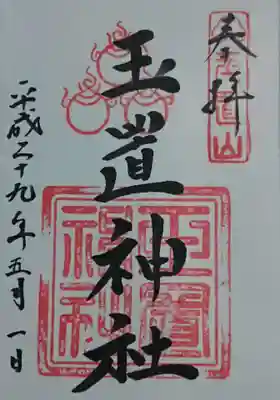 奉拝
玉置山
玉置神社
玉置神社
平成二十九年五月一日